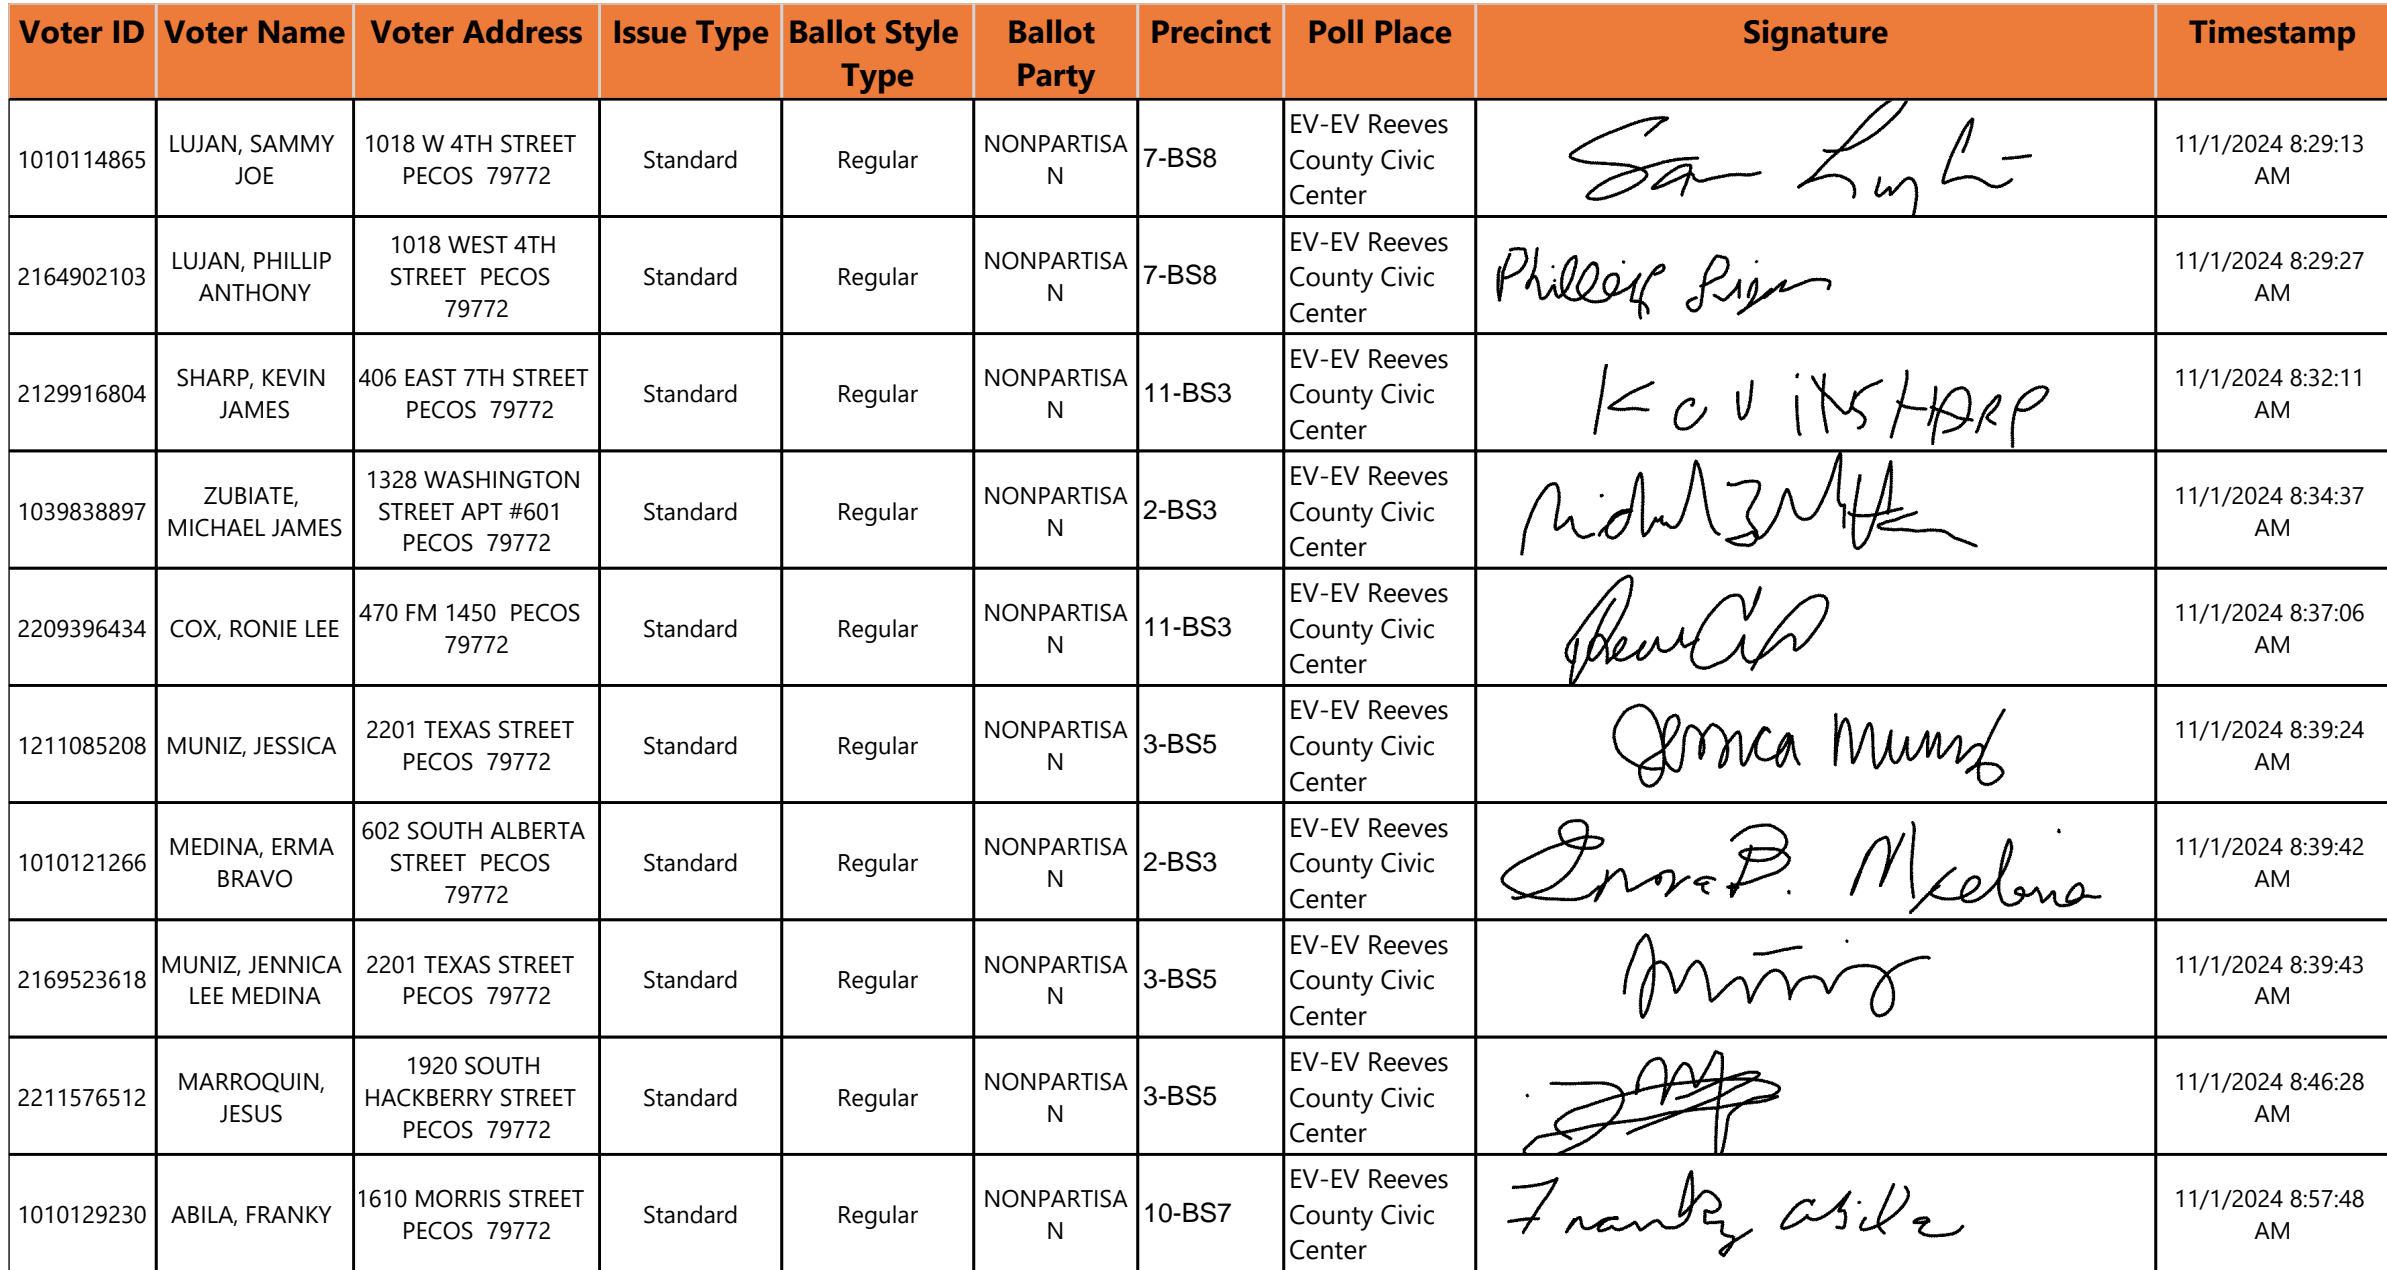 Voter ID Voter Name Voter Address Issue Type Ballot Style Type Ballot Party Precinct Poll Place Signature Timestamp
1010114865 LUJAN, SAMMY JOE 1018 W 4TH STREET PECOS 79772 Standard Regular NONPARTISAN 7-BS8 EV-EV Reeves County Civic Center 11/1/2024 8:29:13 AM
2164902103 LUJAN, PHILLIP ANTHONY 1018 WEST 4TH STREET PECOS 79772 Standard Regular NONPARTISAN 7-BS8 EV-EV Reeves County Civic Center 11/1/2024 8:29:27 AM
2129916804 SHARP, KEVIN JAMES 406 EAST 7TH STREET PECOS 79772 Standard Regular NONPARTISAN 11-BS3 EV-EV Reeves County Civic Center 11/1/2024 8:32:11 AM
1039838897 ZUBIATE, MICHAEL JAMES 1328 WASHINGTON STREET APT #601 PECOS 79772 Standard Regular NONPARTISAN 2-BS3 EV-EV Reeves County Civic Center 11/1/2024 8:34:37 AM
2209396434 COX, RONIE LEE 470 FM 1450 PECOS 79772 Standard Regular NONPARTISAN 11-BS3 EV-EV Reeves County Civic Center 11/1/2024 8:37:06 AM
1211085208 MUNIZ, JESSICA 2201 TEXAS STREET PECOS 79772 Standard Regular NONPARTISAN 3-BS5 EV-EV Reeves County Civic Center Jessica Muniz 11/1/2024 8:39:24 AM
1010121266 MEDINA, ERMA BRAVO 602 SOUTH ALBERTA STREET PECOS 79772 Standard Regular NONPARTISAN 2-BS3 EV-EV Reeves County Civic Center Erma B. Medina 11/1/2024 8:39:42 AM
2169523618 MUNIZ, JENNICA LEE MEDINA 2201 TEXAS STREET PECOS 79772 Standard Regular NONPARTISAN 3-BS5 EV-EV Reeves County Civic Center 11/1/2024 8:39:43 AM
2211576512 MARROQUIN, JESUS 1920 SOUTH HACKBERRY STREET PECOS 79772 Standard Regular NONPARTISAN 3-BS5 EV-EV Reeves County Civic Center 11/1/2024 8:46:28 AM
1010129230 ABILA, FRANKY 1610 MORRIS STREET PECOS 79772 Standard Regular NONPARTISAN 10-BS7 EV-EV Reeves County Civic Center Franky abila 11/1/2024 8:57:48 AM